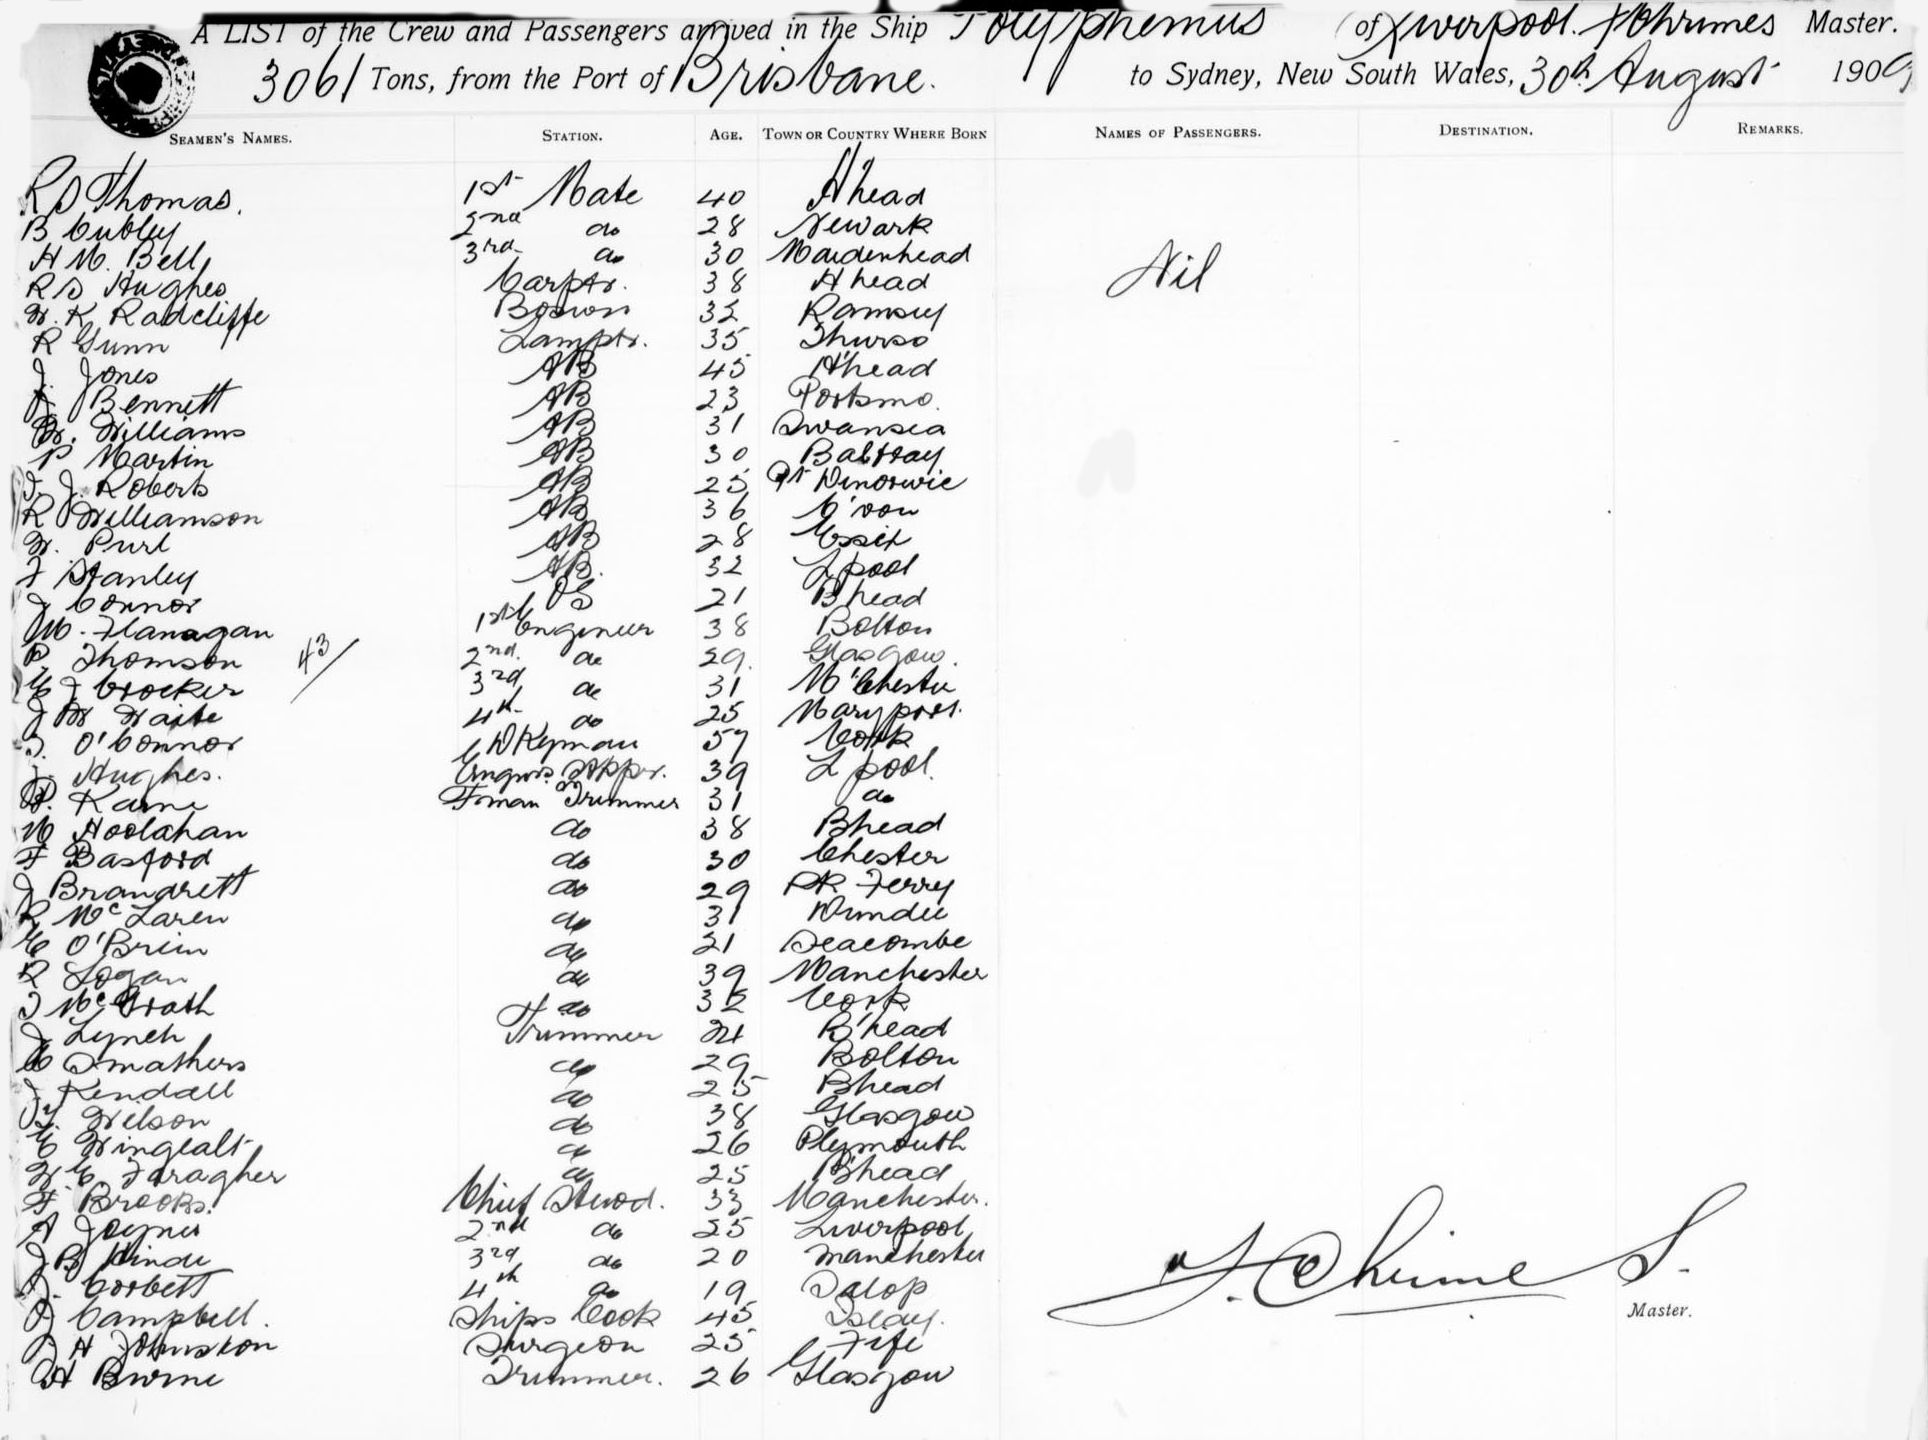 A LIST of the Crew and Passengers arrived in the Ship Polyphemus (of Liverpool. Master.
3061 Tons, from the Port of Brisbane. to Sydney, New South Wales, 30th August 1909
SEAMEN'S NAMES. STATION. AGE. TOWN OR COUNTRY WHERE BORN NAMES OF PASSENGERS. DESTINATION. REMARKS.
R S Thomas. 1st Mate 40 H'head
B Cubley 2nd do 28 Newark
H M. Bell 3rd do 30 Maidenhead Nil
R S Hughes Carptr. 38 H head
W. K Radcliffe Boswn 32 Ramsey
R Gunn Lamptr. 35 Thurso
J. Jones AB 45 H'head
J. Bennett AB 23 Portsmo.
W. Williams AB 31 Swansea
P Martin AB 30 Baltray
J. J. Roberts AB 25 Pt Dinorwic
R Williamson AB 36 C'von
W. Purl AB 28 Essex
F Stanley AB. 32 L pool
J Connor OS 21 B head
M. Flanagan 1st Engineer 38 Bolton
P. Thomson 43/ 2nd. do 29. Glasgow.
E J Crocker 3rd do 31 M'Chester
J W Waite 4th do 25 Maryport.
T. O'Connor DKyman 57 Cork
J. Hughes. Engnrs. Stkpr. 39 L pool.
P. Kane Fman Trimmer 31 do
M Hoolahan do 38 Bhead
F Basford do 30 Chester
J Brandrett do 29 Rk Ferry
R McLaren do 31 Dundee
E O'Brien do 21 Seacombe
R Logan do 39 Manchester
T McGrath do 32 Cork
J Lynch Trimmer 24 B'head
E Smathers do 29 Bolton
J Kendall do 25 Bhead
Wilson do 38 Glasgow
E Wingealt do 26 Plymouth
W. E. Faragher do 25 B'head
F Brooks. Chief Stwd. 33 Manchester.
A Joynes 2nd do 25 Liverpool
J B Hinde 3rd do 20 Manchester
J. Corbett 4th do 19 Salop
D Campbell. Ships Cook 45 Islay.
Master.
J H Johnston Surgeon 25 Fife
H Burne Trimmer. 26 Glasgow